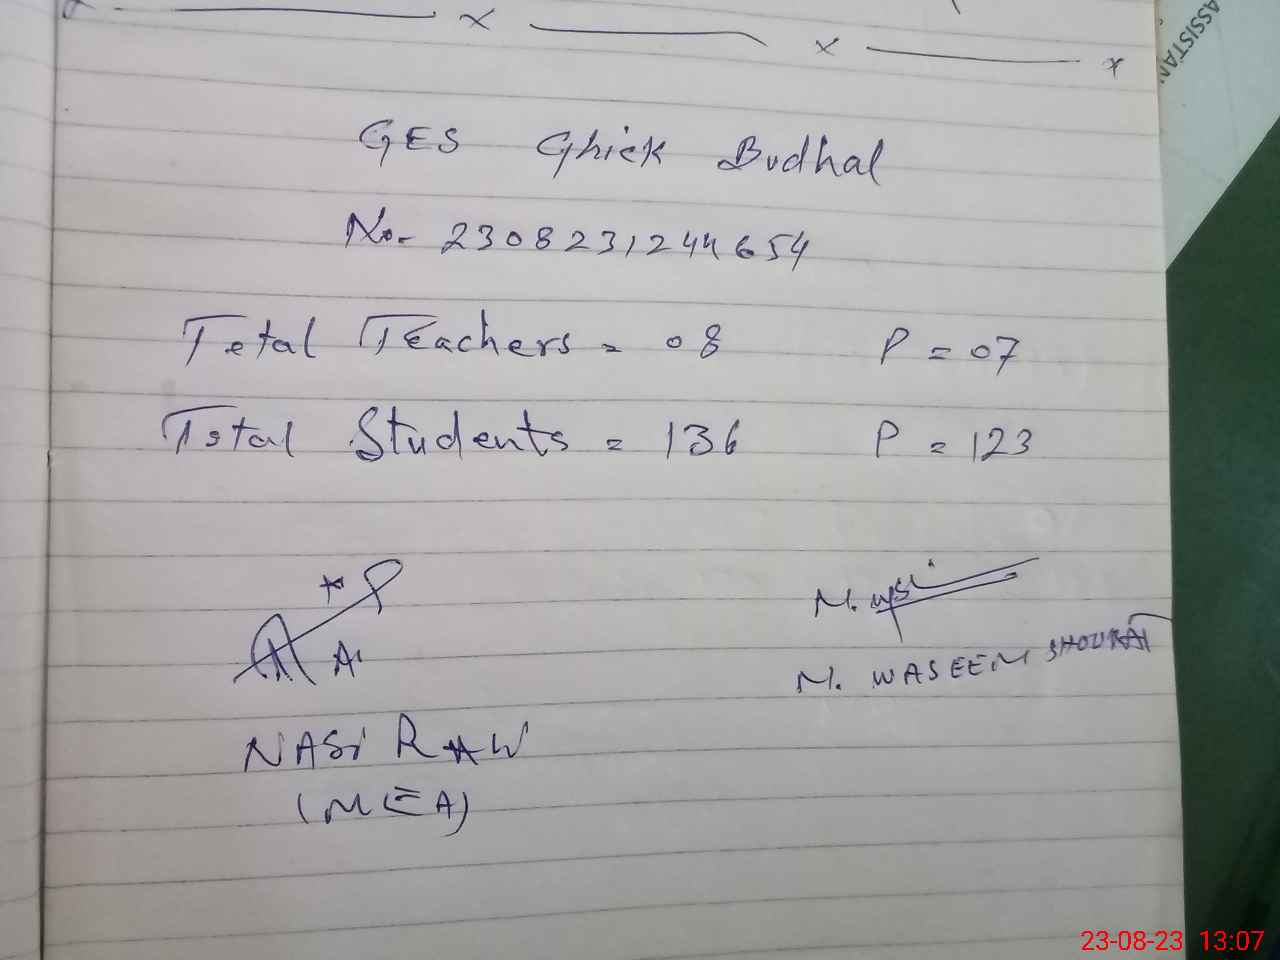 ASSISTAN
x x x
GES Ghick Budhal
No- 2308231244654
Total Teachers = 08 P = 07
Total Students = 136 P = 123
M. WASEEM SHOUKAT
NASIR
(MEA)
23-08-23 13:07